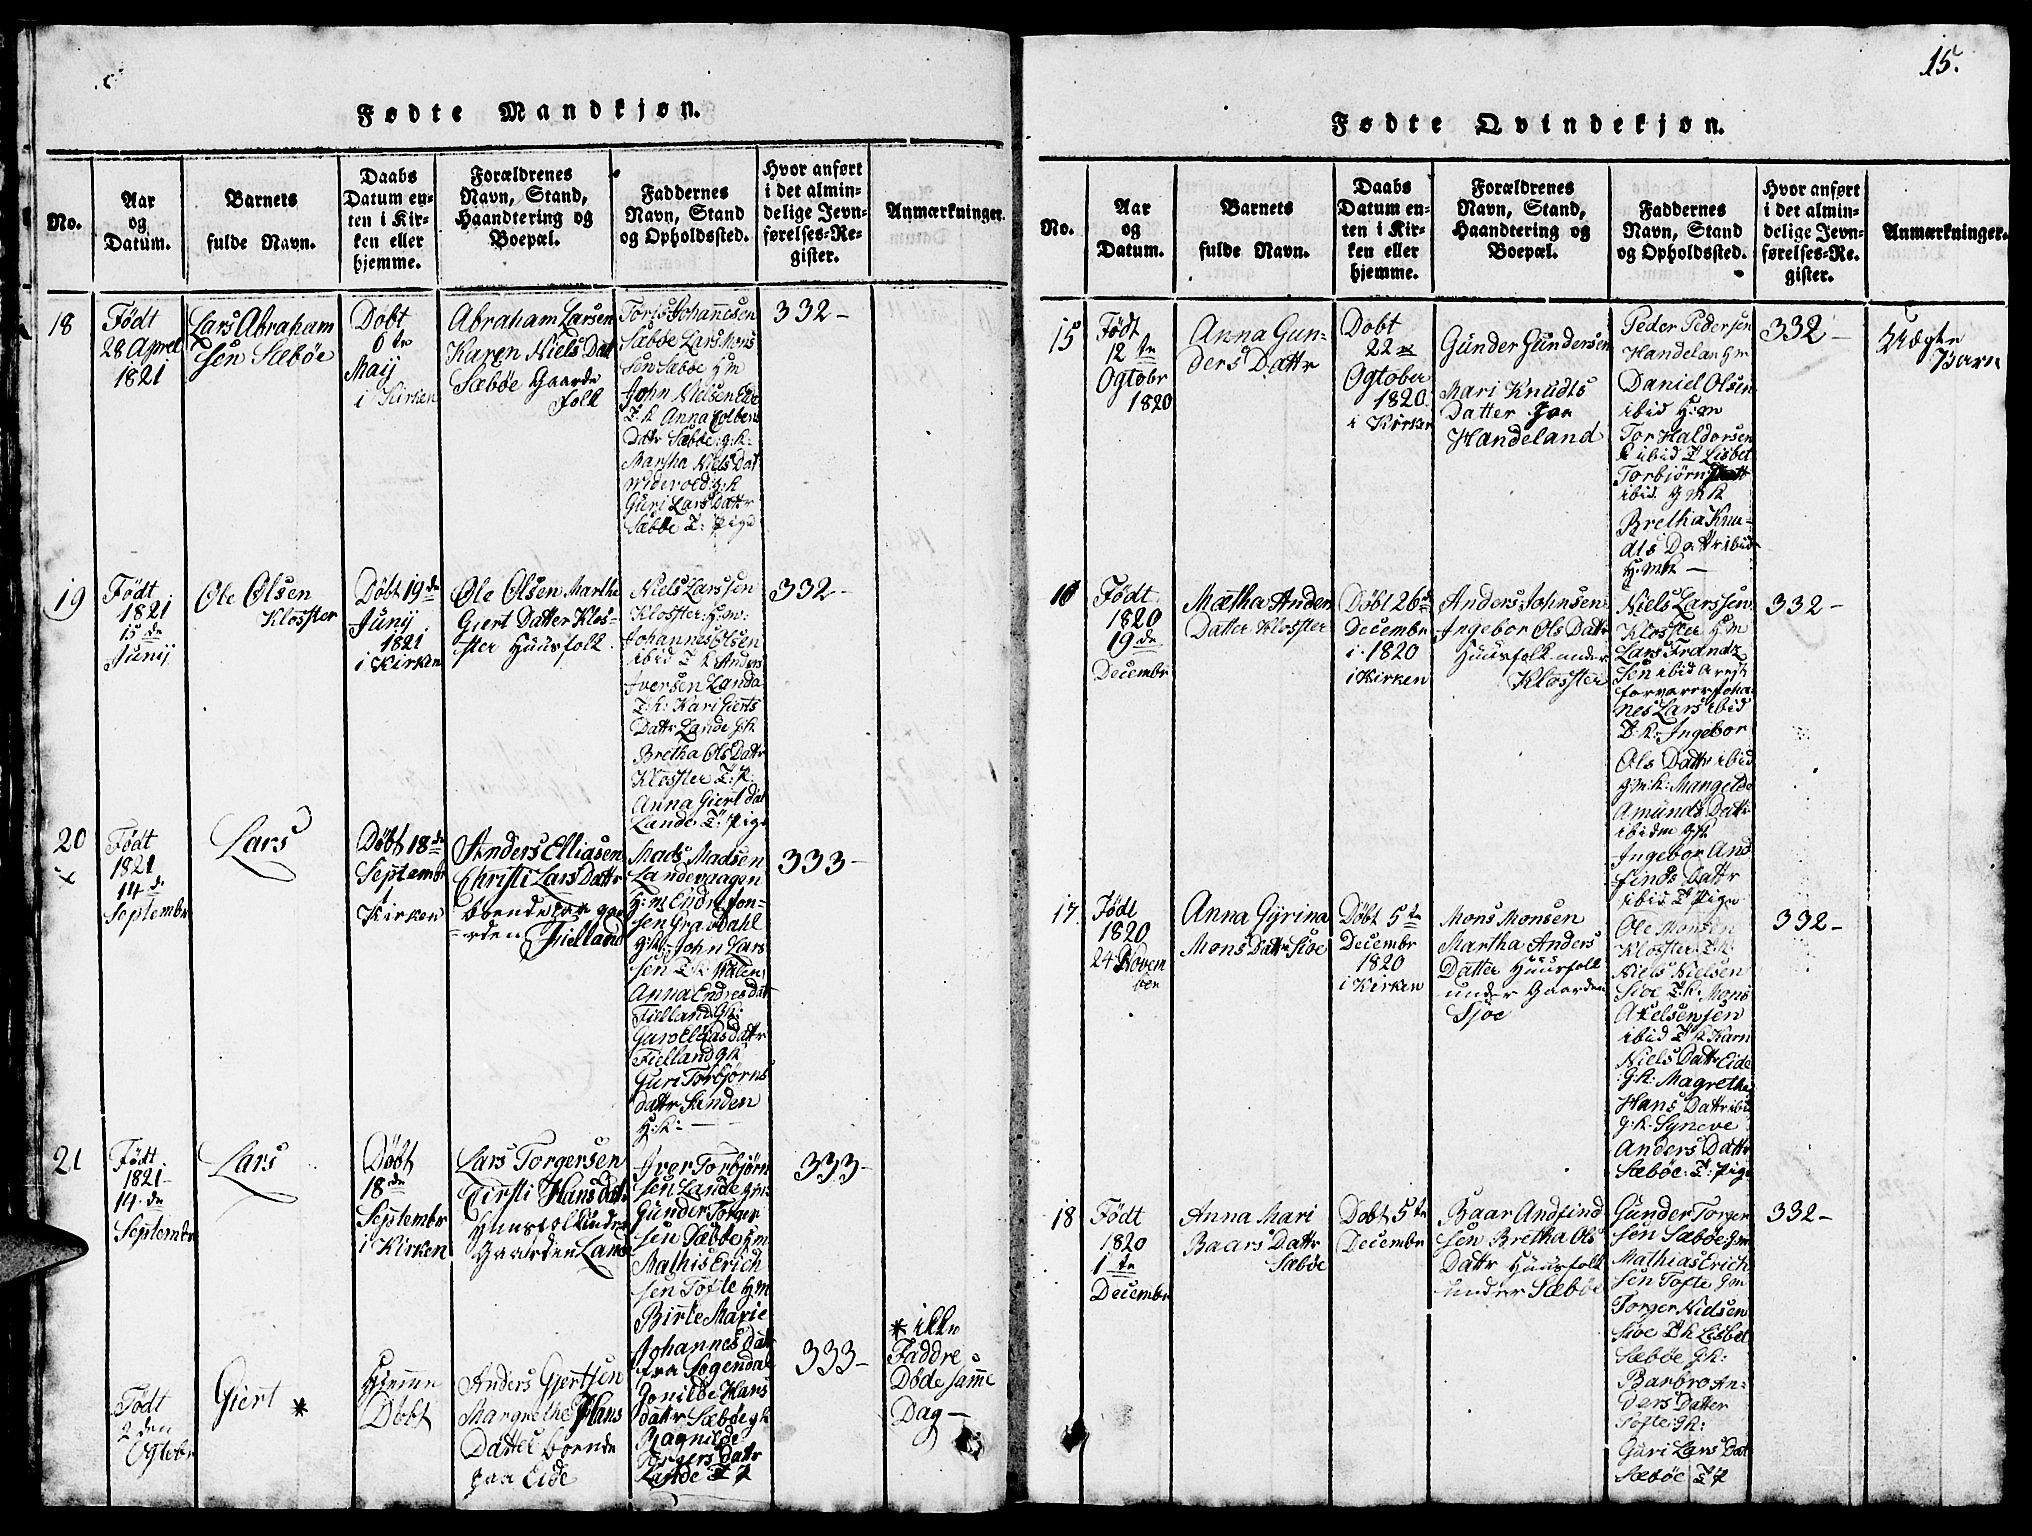 15.
Fødte Mandkjøn.
No.
Aar
og
Datum.
Barnets
fulde Navn.
Daabs
Datum en-
ten i Kir-
ken eller
hjemme.
Forældrenes
Navn, Stand,
Haandtering og
Boepæl.
Faddernes
Navn, Stand
og Opholdssted.
Hvor anført
i det almin-
delige Jevn-
førelses-Re-
gister.
Anmærkninger.
18
Født
28 Apprel
1821
Lars Abraham
sen Sæbøe
Døbt
6te
Maij
i Kirken
Abraham Larsen
Karen Niels Datt
Sæbøe Gaarde
folk
Toris Johannesen
Sæbøe Lars Mons
sen Sæbøe
John Nielsen Eide
T:k Anna
Dattr Sæbøe: g:k:
Martha Niels Dat
g:k
Guri Lars Dattr
Sæbøe T: Pige
332-
19
Født
1821
15de
Junij
Ole Olsen
Klosster
Døbt 19de
Junij
1821
i Kirken
Ole Olsen Marthe
Giert Datter Klos-
ster Huusfolk
Niels Larssen
Klosster: H:m:
Johannes Olsen
ibid T k Anders
Iversen Landa
T:k: Kari Gierts
Dattr Lande g:k
Bretha Ols Dattr
Klosster T: p:
Anna Giert Dat
Lande T: Pige
332-
20
Født
1821
14de
Septembr
Lars
Døbt 18de
Septembr
i
Kirken
Anders Elliasen
Christi Lars Dattr
boende paa gaa
rden Fielland
Mads Madsen
Landevaagen
H:m Endre Jon-
sen Gravdahl
g:k: John Lars
sen T:k
Anna Endres dat
Fielland G:k:
Guro Elias dattr
Fielland g:k
Guri Torbjørns
dattr Sanden
H:k:
333-
21
Født
1821-
14de
Septembr
Lars
Døbt
18de
Septembr
i Kirken
Lars Torgersen
Kirsti Hans datt
Huusfolk under
Gaarden Lande
Iver Torbjørn
sen Lande g:m:
Gunder Torger
sen Sæbøe g:m
Mathis Erich
sen Tofte H:m
Birte Marie
Johannes dat
fra Sogendal
Gonilde Hans
dattr Sæbøe g:k
Ragnilde
Torgers Dattr
Lande T P
333-
Født
2den
Ogtobr
Giert *
Hiemme
Døbt
Anders Gjertsen
Margrethe Hans
Datter boende
paa Eide
333-
* ikke
Faddre
Døde samme
Dag-
Fødte Qvindekjøn.
No.
Aar
og
Datum.
Barnets
fulde Navn.
Daabs
Datum en-
ten i Kir-
ken eller
hjemme.
Forældrenes
Navn, Stand,
Haandtering og
Boepæl.
Faddernes
Navn, Stand
og Opholdssted.
Hvor anført
i det almin-
delige Jevn-
førelses-Re-
gister.
Anmærkninger.
15
Født
12te
Ogtobr
1820
Anna Gun-
ders Dattr
Døbt
22
Ogtober
1820
i Kirken
Gunder Gundersen
Mari Knudts
Datter paa
Handeland
Peder Pedersen
Handelan H:m
Daniel Olsen
ibid H:m
Tor Haldorsen
ibid T Lisbet
Torbjørn Datt
ibid
Bretha Knu-
dts Dattr ibid
H:
332-
Uægte
Barn
16
Født
1820
19de
Decembr
Mætha Anders
Datter Klosster
Døbt 26de
Decembr
i 1820
i Kirken
Anders Johnsen
Ingebor Ols Dattr
Huusfolk under
Klosster
Niels Larssen
Klosster H:m
Lars Frandz
sen ibid Arrest
forvarrer Joha
nes Lars ibid
T:k: Ingebor
Ols Dattr ibid
g:m:k: Mangelde
Amunds Dattr
ibidm g:k
Ingebor And
finds Dattr
ibid T Pige
332-
17
Født
1820
24 Novem
ber
Anna Gÿrina
Mons Dattr Sioe
Døbt 5te
Decembr
1820
i Kirken
Mons Monsen
Martha Anders
Datter Huusfolk
under Gaarden
Sjoe
Ole Monsen
Klosster T:k
Niels Nielsen
Sioe T:k: Mons
Axelsensen
ibid T:k Karn
Niels Dattr Eide
:g:k: Magrethe
Hans Dattr ibid
g:k: Syneve
Anders Dattr
Sæbøe: T: Pige
332-
18
Født
1820
1te
Decembr
Anna Mari
Baars Dattr
Sæbøe
Døbt 5te
Decembr
Baar Andfind
sen Bretha Ols
Dattr Huusfolk
under Sæbøe
Gunder Torger
sen Sæbøe g:m
Mathias Erich
sen Tofte g:m
Torger Nielsen
Sioe T:k Lisbet
Sæbøe g:k:
Barbro An-
ders Datter
Tofte: g:k:
Guri Lars Dat
Sæbøe T P
332-